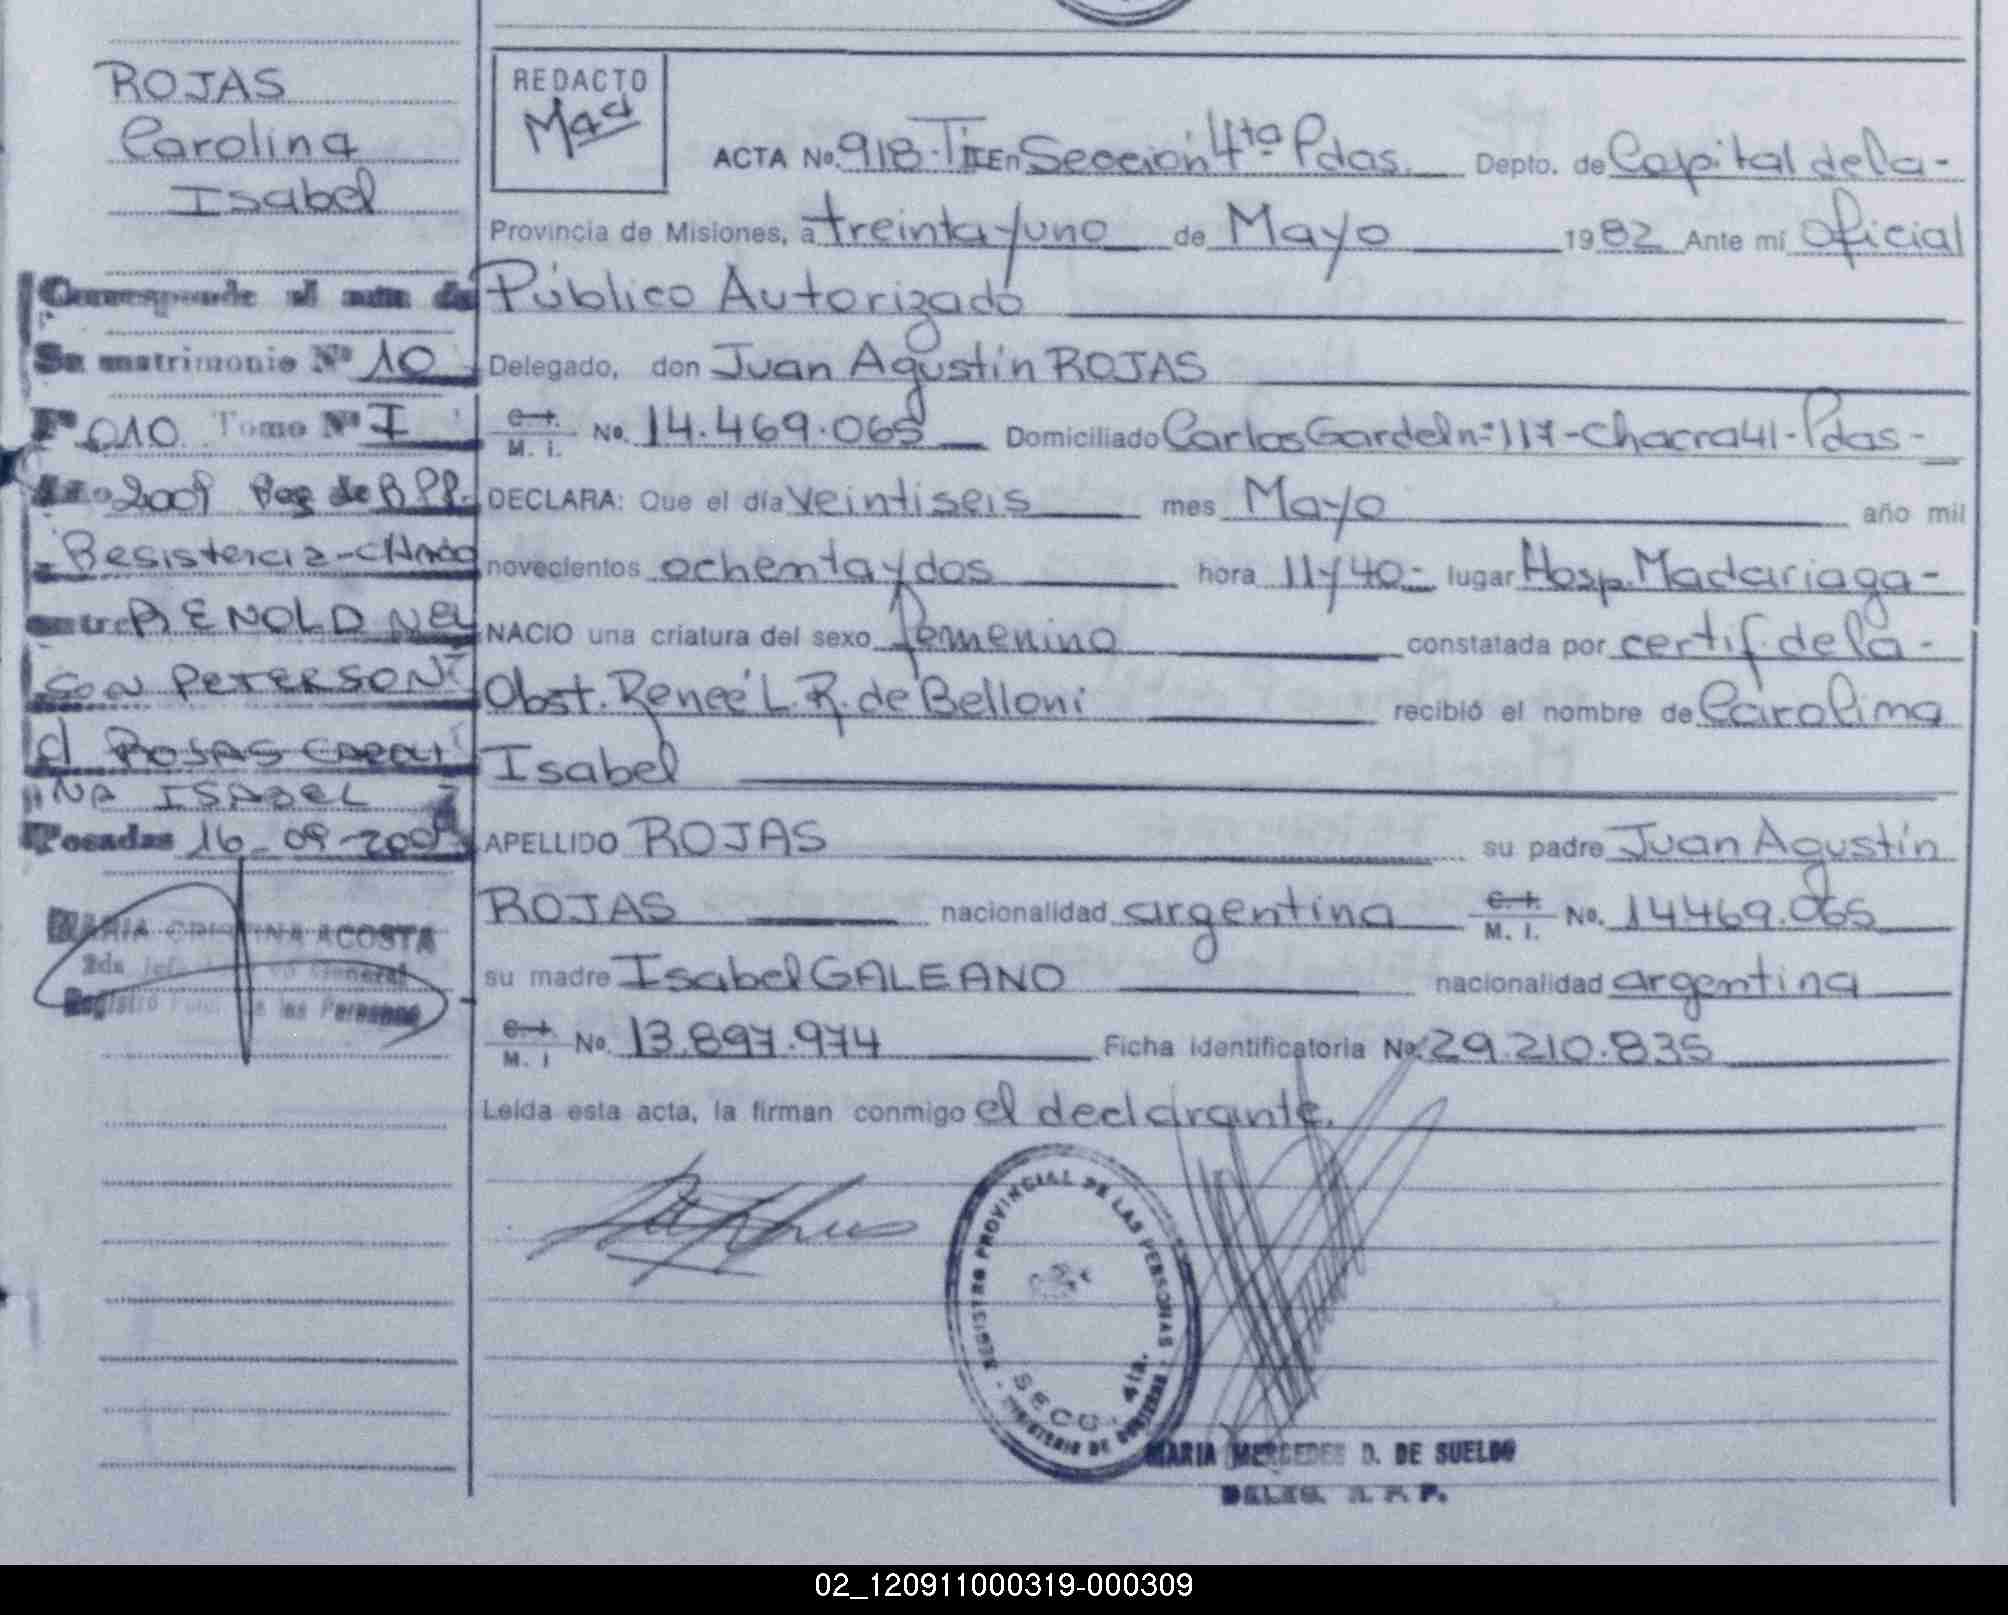 ROJAS
Carolina
Isabel
Corresponde al acta de
Su matrimonio Nº 10
Fº 010 Tomo Nº I
Año 2009 Reg de R PP.
Resistencia-CHACO
entre RENOLD NEL
SON PETERSON
d ROJAS CAROLI
NA ISABEL
Posadas 16-09-2009
MARIA CRISTINA ACOSTA
General
Registro de las Personas
REDACTO
ACTA No. 918-TII En Sección 4ta Pdas. Depto. de Capital de la-
Provincia de Misiones, a treinta y uno de Mayo 1982 Ante mí Oficial
Público Autorizado
Delegado, don Juan Agustín ROJAS
C. I. M. I. No. 14.469.065 Domiciliado Carlos Gardel nº 117-Chacra 41-Pdas-
DECLARA: Que el día veintiseis mes Mayo año mil
novecientos ochenta y dos hora 11 y 40- lugar Hosp. Madariaga-
NACIO una criatura del sexo femenino constatada por certif. de la-
Obst. Reneé L. R. de Belloni recibió el nombre de Carolina
Isabel
APELLIDO ROJAS su padre Juan Agustín
ROJAS nacionalidad argentina C. I. M. I. No. 14469.065
su madre Isabel GALEANO nacionalidad argentina
C. I. M. I No. 13.897.974 Ficha identificatoria No. 29.210.835
Leída esta acta, la firman conmigo el declarante.
REGISTRO PROVINCIAL DE LAS PERSONAS
SECC. 4ta.
MINISTERIO DE GOBIERNO
MARIA MERCEDES D. DE SUELDO
DELEG. R. P. P.
02_120911000319-000309